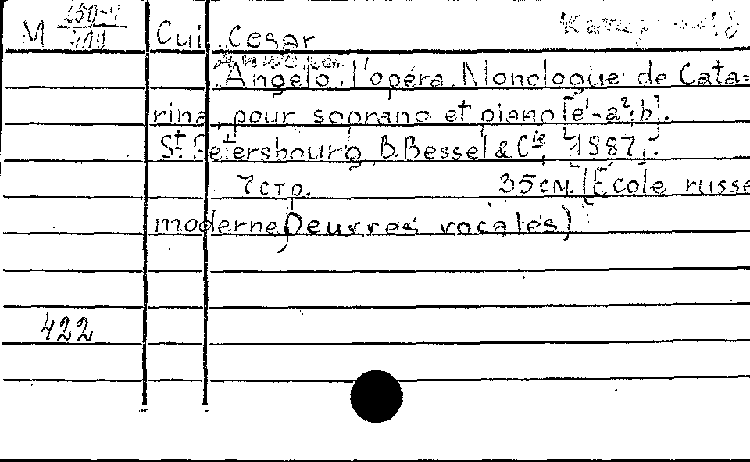 M 250-4
Cui, Cesar
Angelo, l'opéra. Monologue de Cata=
rina, pour soprano et piano [e¹-a²; h].
St. Petersbourg, B. Bessel & Cie, [1887].
7 стр. 35 см. (École russe
moderne. Oeuvres vocales)
422